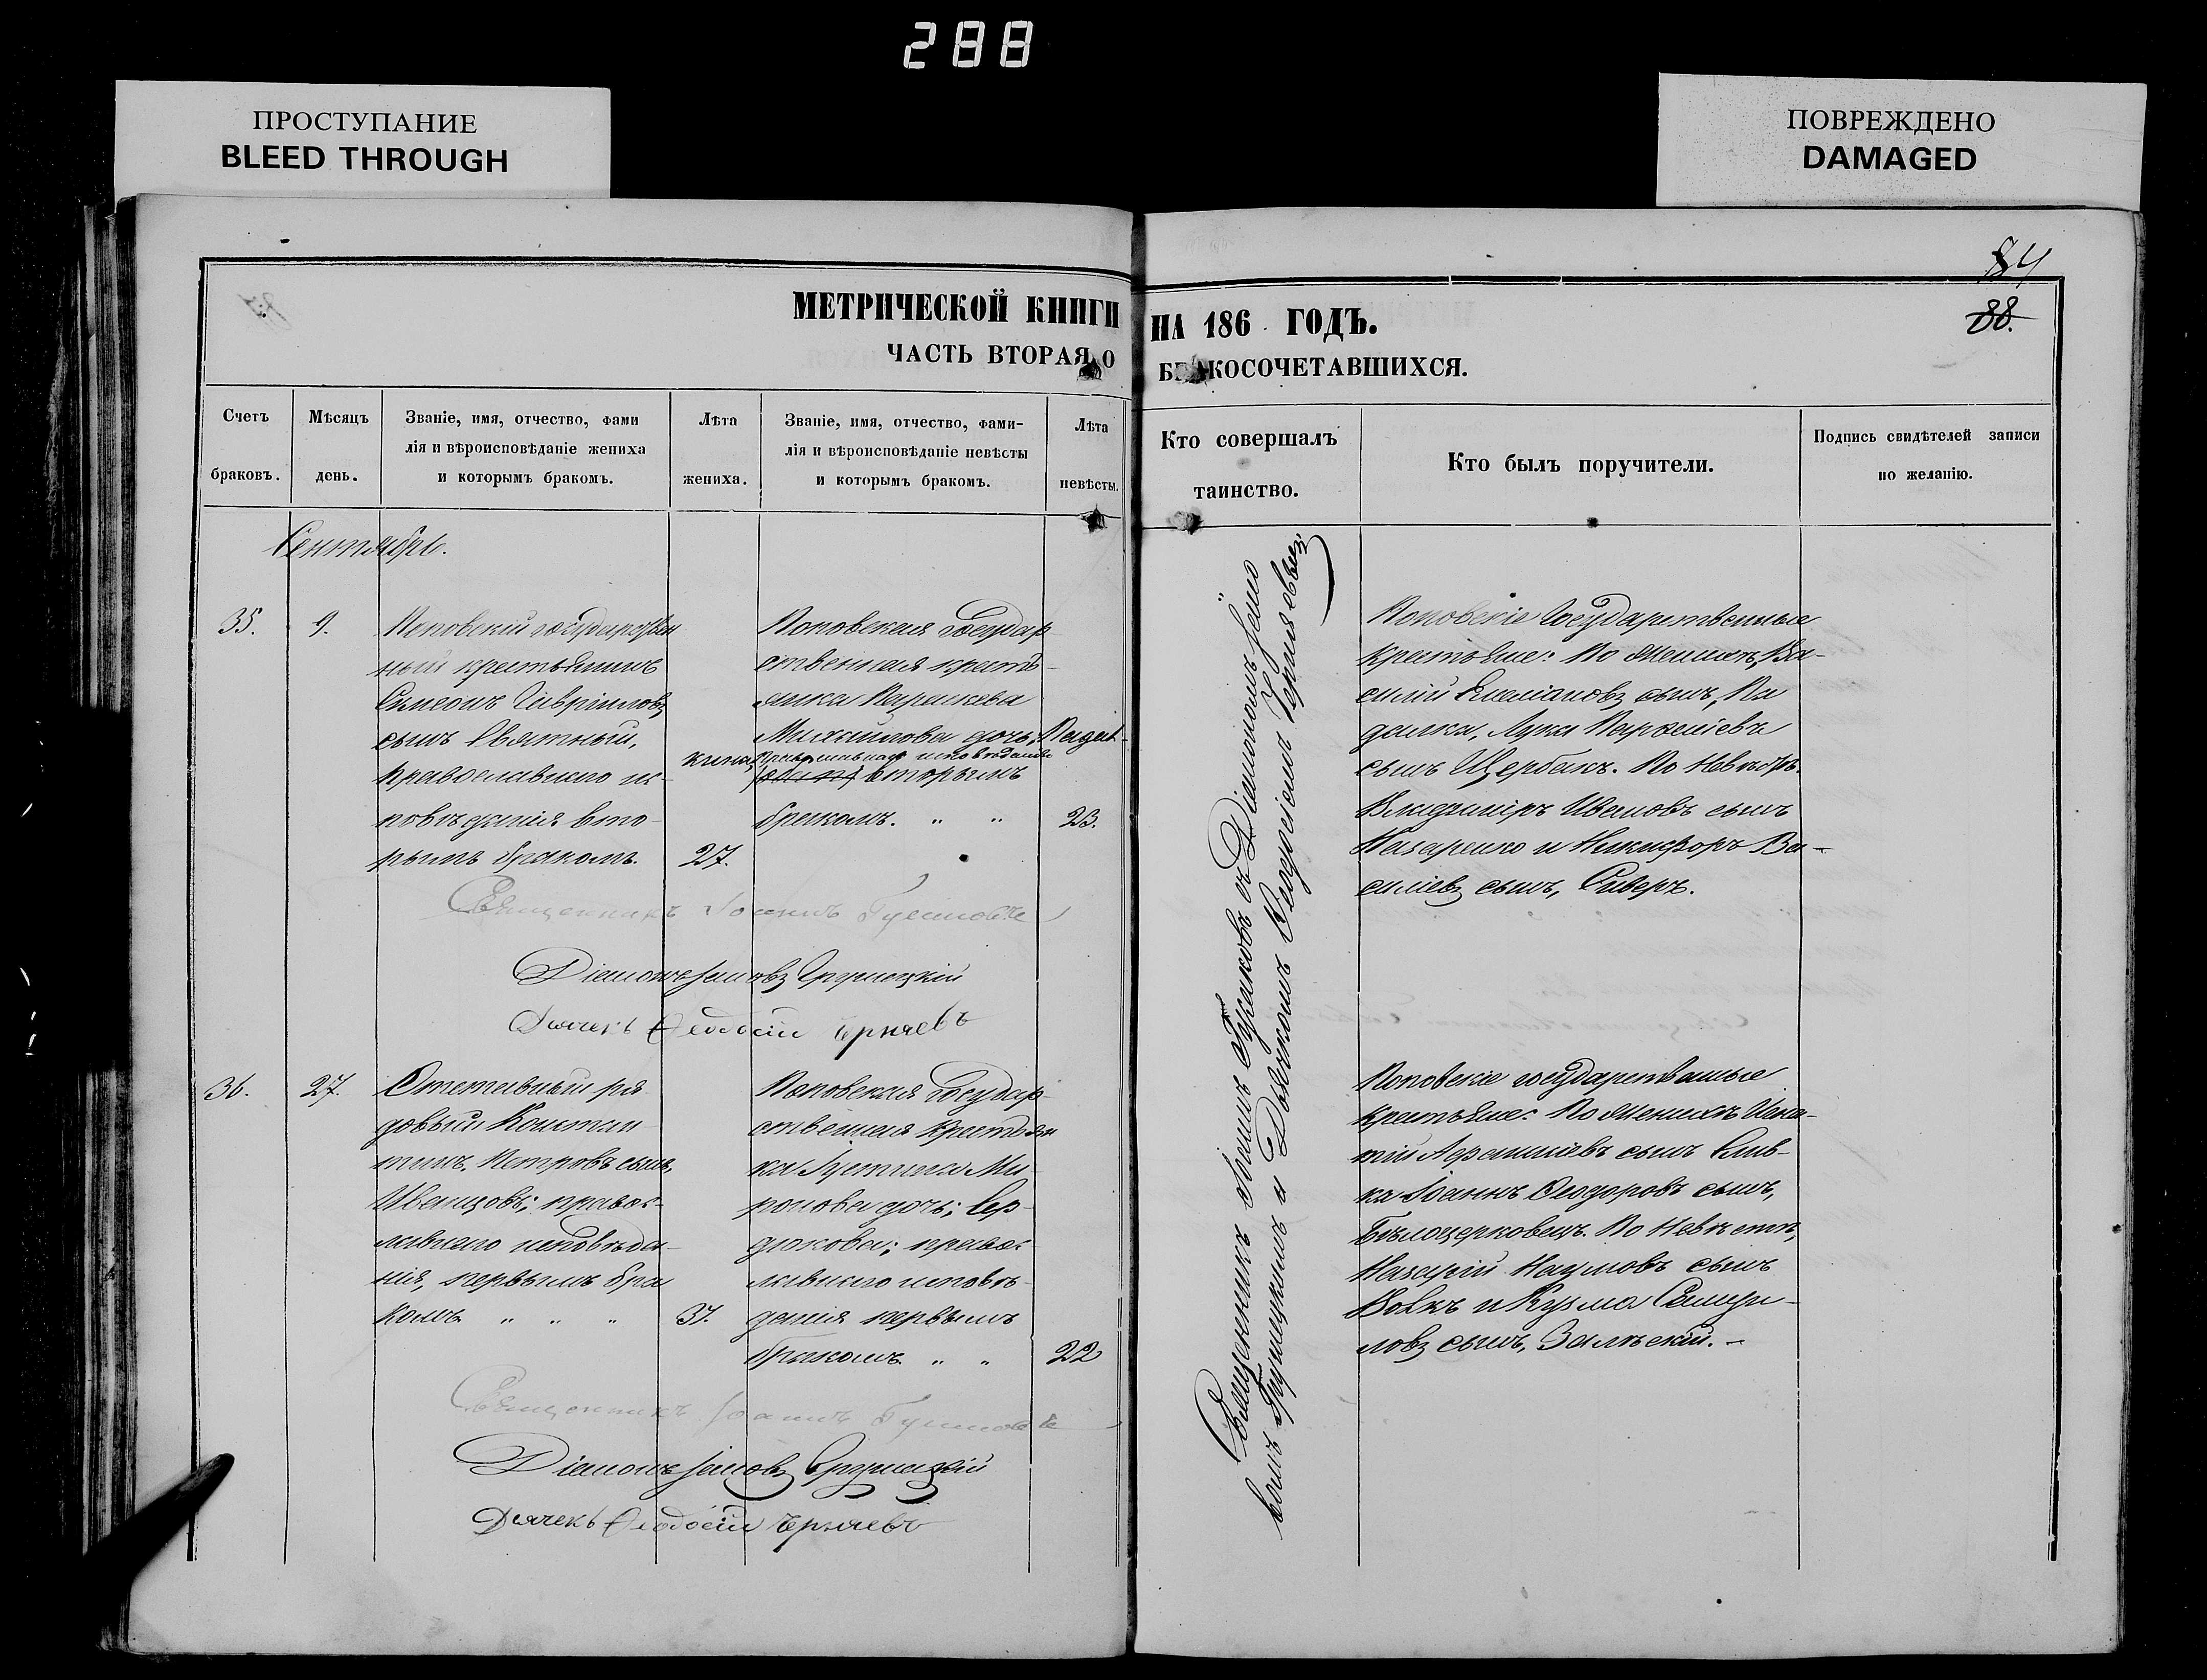 288
ПРОСТУПАНИЕ
BLEED THROUGH
ПОВРЕЖДЕНО
DAMAGED
84
88.
МЕТРИЧЕСКОЙ КНИГИ НА 186 ГОДЪ.
ЧАСТЬ ВТОРАЯ О БРАКОСОЧЕТАВШИХСЯ.
Счетъ браковъ.
Мѣсяцъ день.
Званіе, имя, отчество, фами
лія и вѣроисповѣданіе жениха
и которымъ бракомъ.
Лѣта жениха.
Званіе, имя, отчество, фами-
лія и вѣроисповѣданіе невѣсты
и которымъ бракомъ.
Лѣта невѣсты.
Кто совершалъ
таинство.
Кто былъ поручители.
Подпись свидѣтелей записи
по желанію.
Сентябрь.
35.
9.
Поповскій государствен
ный крестьянинъ
Симеонъ Гавріиловъ
сынъ
православнаго ис-
повѣданія вто-
рымъ бракомъ.
27.
Поповская Государ
ственная кресть-
янка Параскева
Михайлова дочь,
православнаго исповѣданія
вторымъ
бракомъ. " "
23.
Поповскіе Государственные
крестьяне: По женихѣ, Ва-
силій Емеліановъ сынъ, Па
далка, Лука
сынъ Щербакъ. По Невѣстѣ.
Владиміръ Ивановъ сынъ
Назаренко и Никифоръ Ва-
силіевъ сынъ, Сиверъ.
Священникъ Іоаннъ
Діаконъ Іаковъ Грушецкій
Дьячекъ Ѳеодосій Черняевъ
36.
27.
Отставный ря
довый Констан
тинъ Петровъ сынъ
Иванцовъ; правос-
лавнаго исповѣда-
нія, первымъ бра
комъ " " "
37.
Поповская Государ
ственная крестьян
ка Іустина Ми-
ронова дочь;
православнаго исповѣ-
данія первымъ
бракомъ. " "
22
Поповскіе государственные
крестьяне: По женихѣ Игна-
тій сынъ Слив-
ка Іоаннъ Ѳеодоровъ сынъ,
Бѣлоцерковецъ. По Невѣстѣ,
Назарій Наумовъ сынъ
Вовкъ и Кузма Самуи-
ловъ сынъ, Залѣскій. -
Священникъ Іоаннъ съ Діакономъ Іако
вомъ Грушецкимъ и Дьячкомъ Ѳеодосіемъ Черняевымъ
Священникъ Іоаннъ
Діаконъ Іаковъ Грушецкій
Дьячекъ Ѳеодосій Черняевъ